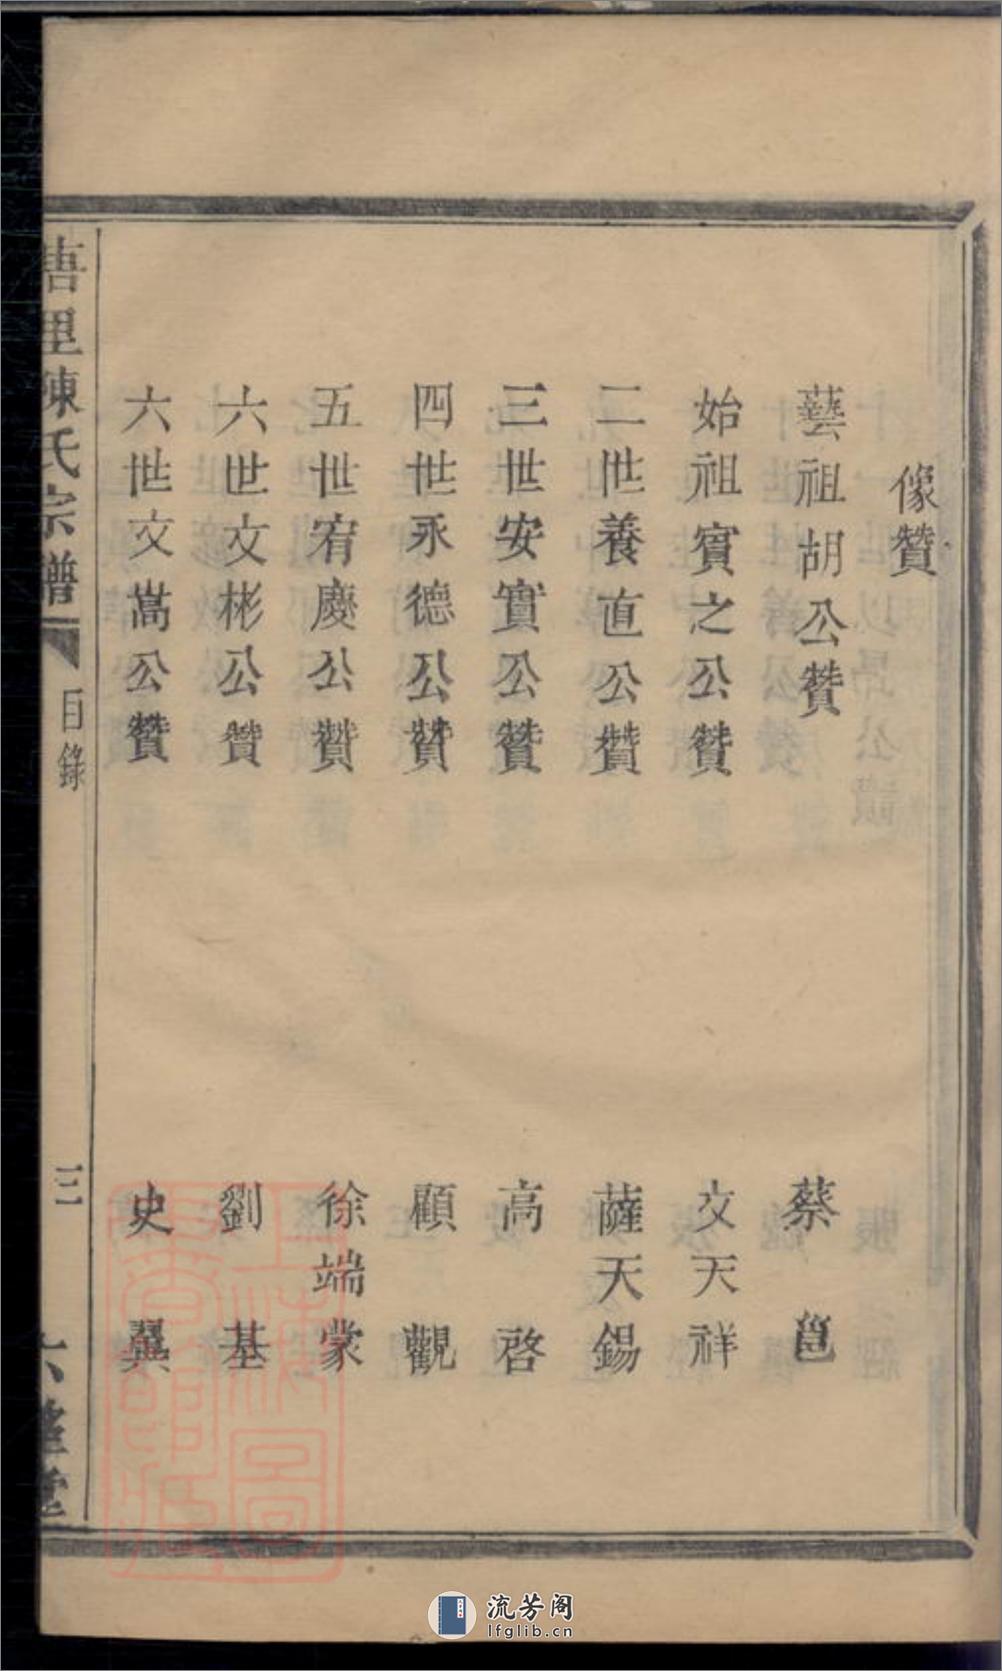 像贊
藝祖胡公贊 蔡邕
始祖賓之公贊 文天祥
二世養直公贊 薩天錫
三世安實公贊 高啓
四世永德公贊 顧觀
五世宥慶公贊 徐端蒙
六世文彬公贊 劉基
六世文嵩公贊 史翼
里陳氏宗譜
目錄
三
六
堂
上海圖書館藏
流芳阁
lfglib.cn